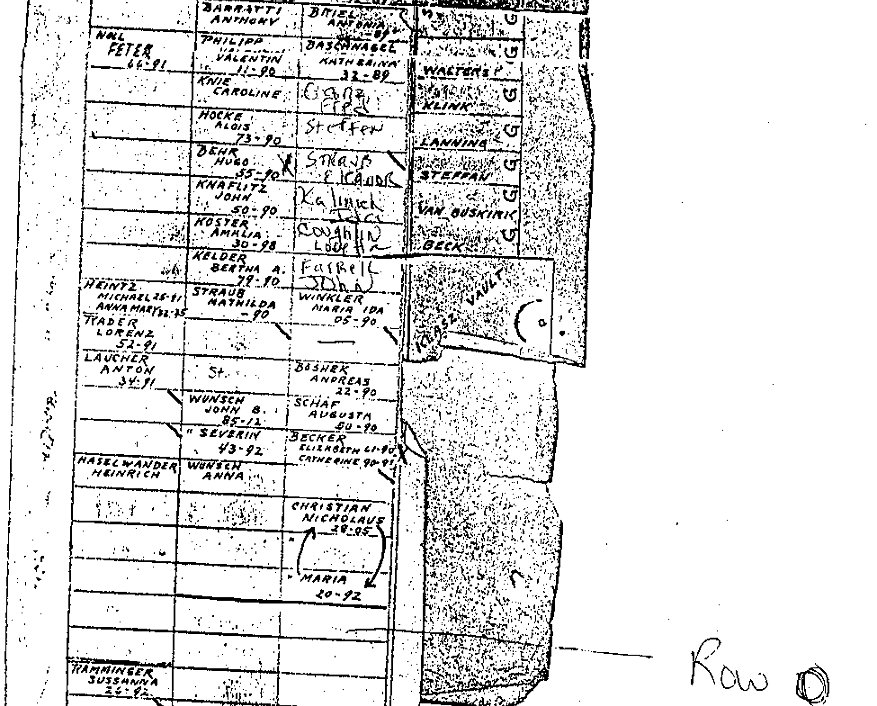 BARRATTI
ANTHONY
BRIEL
ANTONIA
G
NOLL
PETER
66-91
PHILIPP
VALENTIN
11-90
DASCHNAGEL
KATHERINA
32-89
WALTERS
G
KNIE
CAROLINE
KLINK
G
HOCKE
ALOIS
73-90
Steffen
LANNING
G
BEHR
HUGO
55-90
X
STRAUB
ELEANOR
STEFFAN
G
KNAFLITZ
JOHN
50-90
VAN BUSKIRK
G
KOSTER
AMALIA
30-98
COUGHLIN
BECK
G
KELDER
BERTHA A.
79-90
Farrell
John
KLASZ VAULT
HEINTZ
MICHAEL 25-91
ANNA MARY 32-35
STRAUB
MATHILDA
-90
WINKLER
MARIA IDA
05-90
TRADER
LORENZ
52-91
LAUCHER
ANTON
34-91
St.
BOSHEK
ANDREAS
22-90
WUNSCH
JOHN B.
85-12
SCHAF
AUGUSTA
50-90
" SEVERIN
43-92
BECKER
ELIZABETH 61-90
CATHERINE 90-91
HASELWANDER
HEINRICH
WUNSCH
ANNA
CHRISTIAN
NICHOLAUS
28-05
" MARIA
20-92
HAMMINGER
SUSSANNA
26-92
Row O